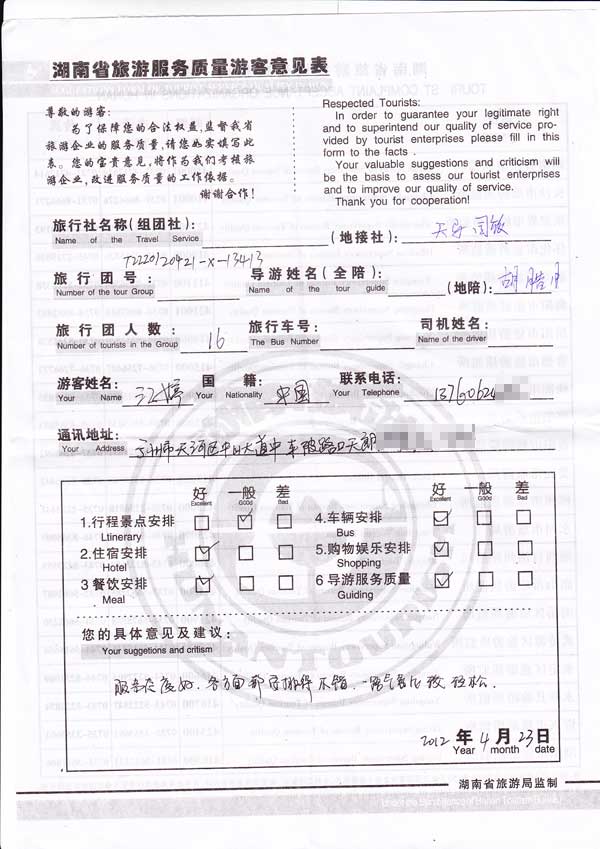 湖南省旅游服务质量游客意见表
尊敬的游客:
为了保障您的合法权益,监督我省
旅游企业的服务质量,请您如实填写此
表。您的宝贵意见,将作为我们考核旅
游企业,改进服务质量的工作依据。
谢谢合作!
Respected Tourists:
In order to guarantee your legitimate right
and to superintend our quality of service pro-
vided by tourist enterprises please fill in this
form to the facts .
Your valuable suggestions and criticism will
be the basis to asess our tourist enterprises
and to improve our quality of service.
Thank you for cooperation!
旅行社名称(组团社): (地接社): 天导国旅
Name of the Travel Service
T2220120421-X-13413
旅行团号: 导游姓名(全陪) (地陪):
Number of the tour Group Name of the tour guide
旅行团人数: 16 旅行车号: 司机姓名:
Number of tourists in the Group The Bus Number Name of the driver
游客姓名: 国籍: 中国 联系电话: 13760624
Your Name Your Nationality Your Telephone
通讯地址: 广州市天河区中山大道中车陂路口天朗
Your Address
好 一般 差 好 一般 差
Excellent G00d Bad Excellent G00d Bad
1.行程景点安排 4.车辆安排
Ltinerary Bus
2.住宿安排 5.购物娱乐安排
Hotel Shopping
3 餐饮安排 6 导游服务质量
Meal Guiding
您的具体意见及建议:
Your suggetions and critism
服务态度好.各方面都安排得不错.一路气氛比较轻松.
2012 年 4 月 23 日
Year month date
湖南省旅游局监制